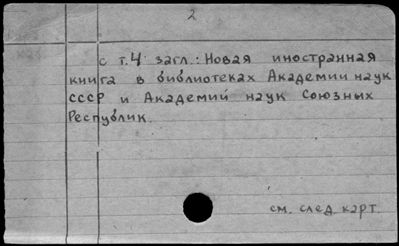 2
с т.4 загл.: Новая иностранная
книга в библиотеках Академии наук
СССР и Академий наук Союзных
Республик.
см. след. карт.